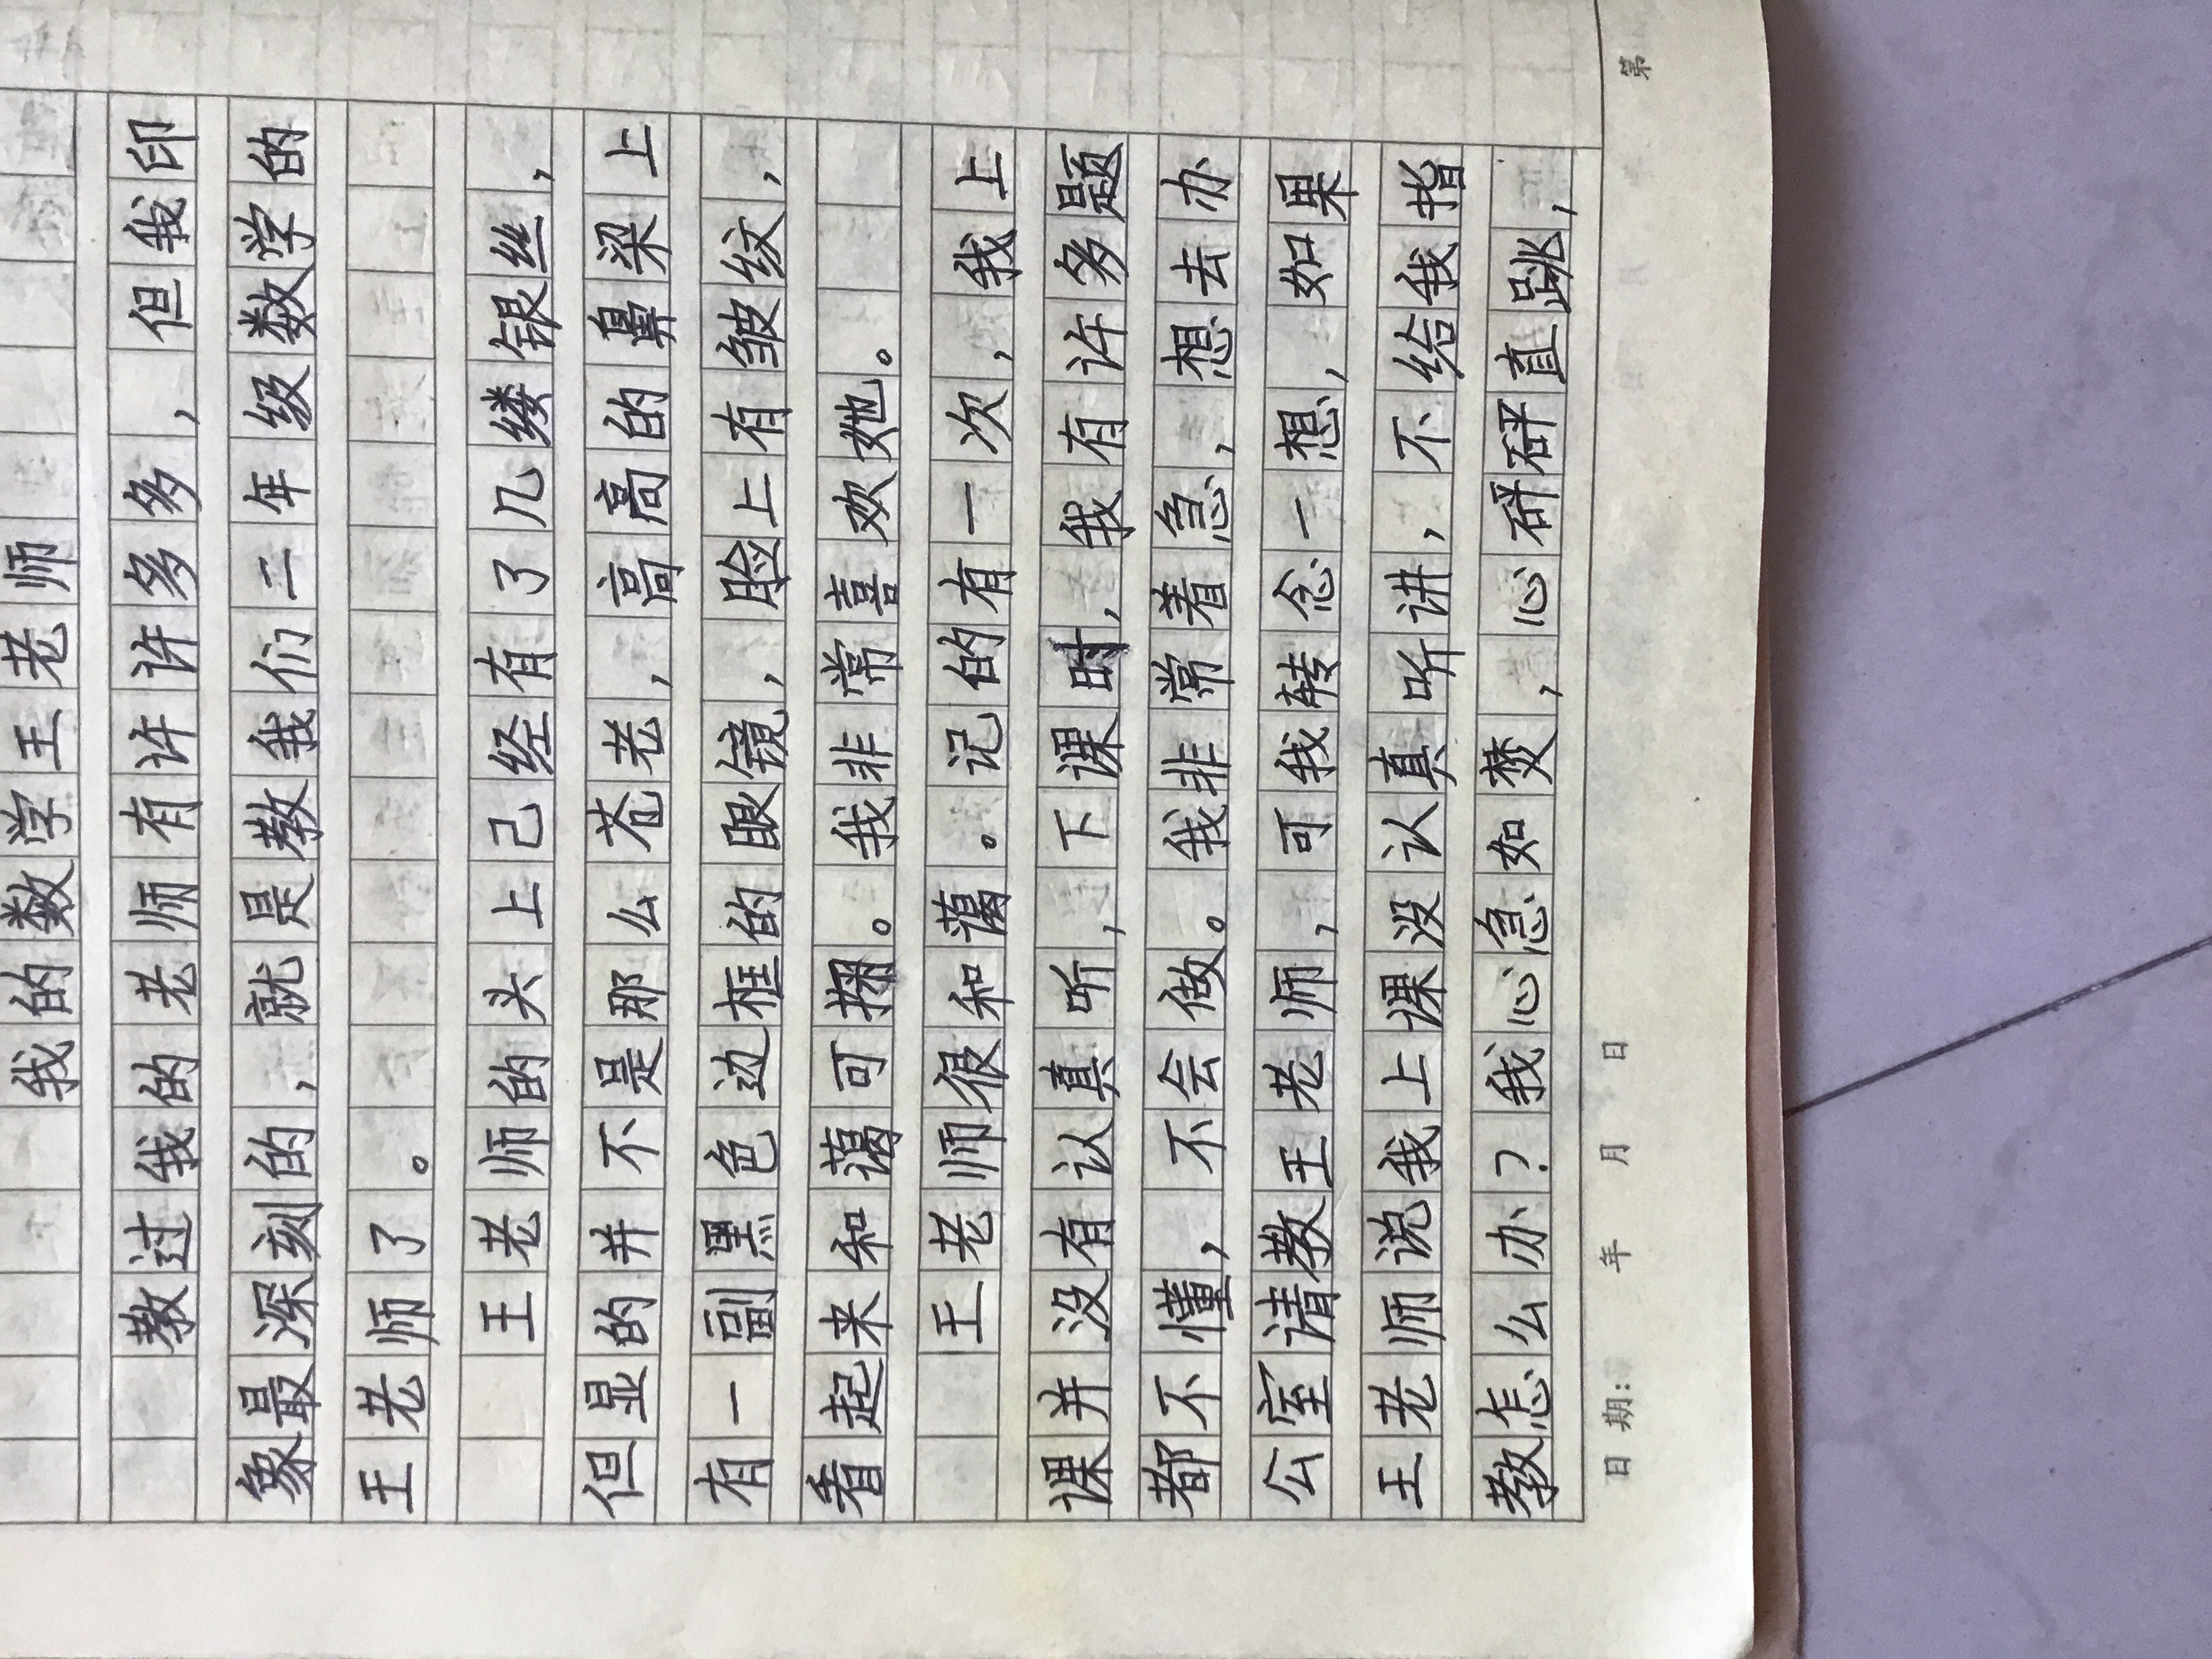 我的数学王老师
教过我的老师有许许多多，但我印
象最深刻的，就是教我们二年级数学的
王老师了。
王老师的头上己经有了几缕银丝，
但显的并不是那么苍老，高高的鼻梁上
有一副黑色边框的眼镜，脸上有皱纹，
看起来和蔼可掬。我非常喜欢她。
王老师很和蔼。记的有一次，我上
课并没有认真听，下课时，我有许多题
都不懂，不会做。我非常着急，想去办
公室请教王老师，可我转念一想，如果
王老师说我上课没认真听讲，不给我指
教怎么办？我心急如焚，心砰砰直跳，
日期: 年 月 日 第